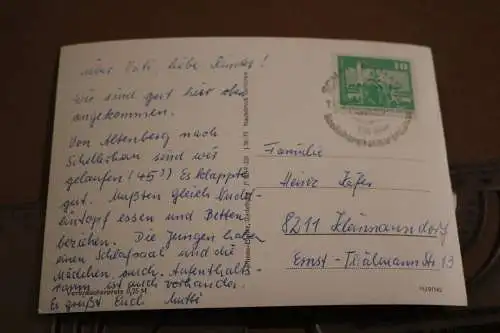 Vati, liebe Kinder!
Wir sind gut hier oben
angekommen.
Von Altenberg nach
Schellerhau sind wir
gelaufen (45') Es klappte
gut. Mußten gleich Nudel-
eintopf essen und Betten
beziehen. Die Jungen haben
einen Schlafsaal und die
Mädchen auch. Aufenthalts-
raum ist auch vorhanden.
Es grüßt Euch Mutti
10
Familie
Heiner
8211 Kleinnaundorf
Ernst-Thälmannstr 13